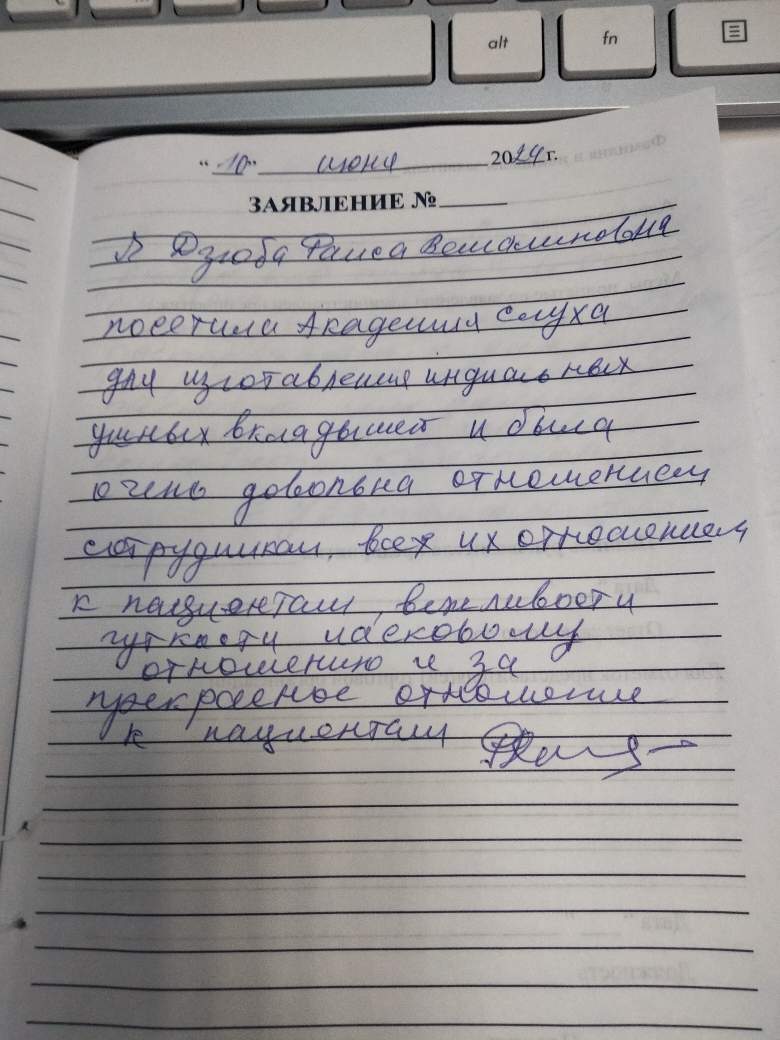 alt
fn
"10" июня 2024 г.
ЗАЯВЛЕНИЕ №
Я Дзюба Раиса
посетила Академия Слуха
для изготавления индиальных
ушных вкладышей и была
очень довольна отношением
сотрудникам, всех их отношением
к пациентам, вежливости
чуткости ласковому
отношению и за
прекрасное отношение
к пациентам